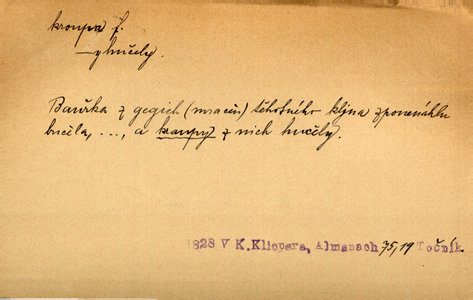 kroupa f.
— y hučely.
Bouřka z gegich (mračen) těhotného klína zponenáhlu
bučela, ..., a kroupy z nich hučely.
1828 V K.Klicpera, Almanach 75,19 Točník.